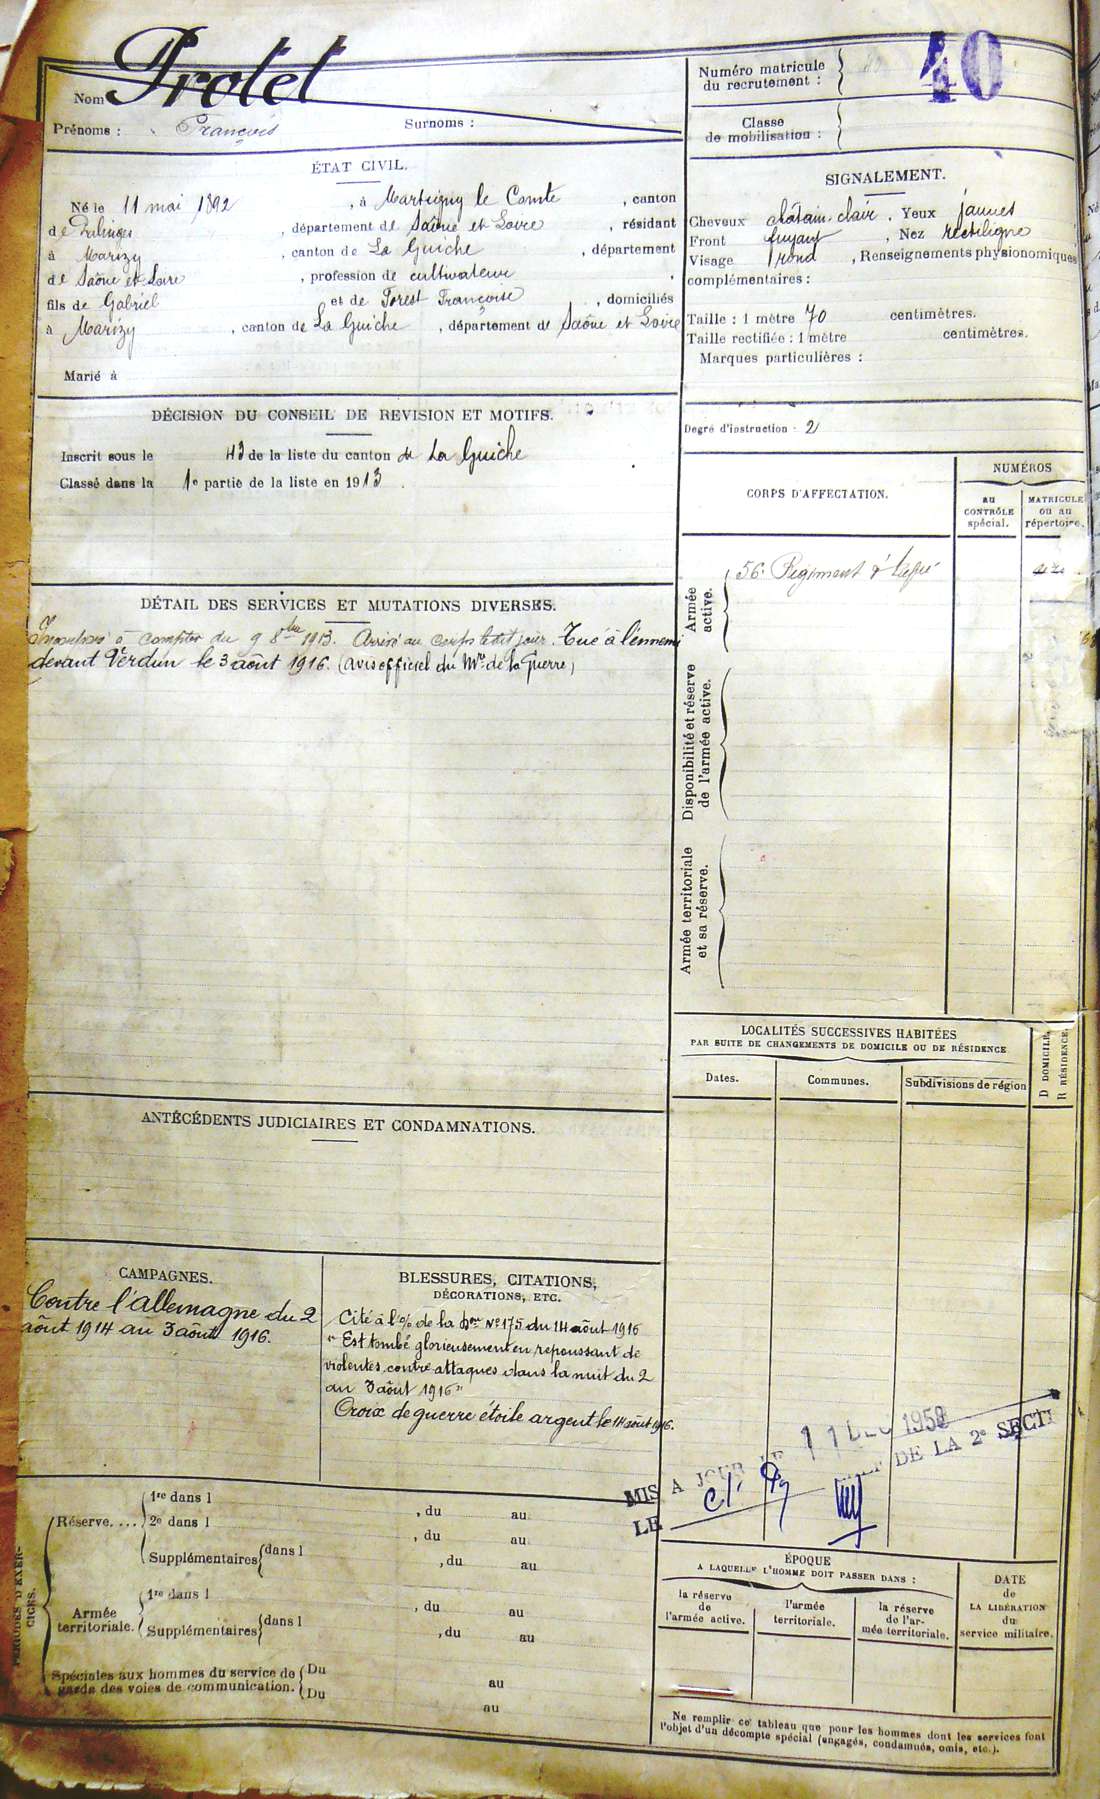 Nom Protet
Prénoms : François Surnoms :
ÉTAT CIVIL.
Né le 11 mai 1892, à Martigny le Comte, canton
de Palinges, département de Saône et Loire, résidant
à Marizy, canton de La Guiche, département
de Saône et Loire, profession de cultivateur,
fils de Gabriel et de Forest Françoise, domiciliés
à Marizy, canton de La Guiche, département de Saône et Loire
Marié à
DÉCISION DU CONSEIL DE REVISION ET MOTIFS.
Inscrit sous le 43 de la liste du canton de La Guiche
Classé dans la 1e partie de la liste en 1913.
DÉTAIL DES SERVICES ET MUTATIONS DIVERSES.
Incorporé à compter du 9 8bre 1913. Arrivé au corps le dit jour. Tué à l'ennemi
devant Verdun le 3 août 1916. (avis officiel du Mre de la Guerre)
ANTÉCÉDENTS JUDICIAIRES ET CONDAMNATIONS.
CAMPAGNES.
Contre l'allemagne du 2
août 1914 au 3 août 1916.
BLESSURES, CITATIONS,
DÉCORATIONS, ETC.
Cité à l'% de la Don No 175 du 14 août 1916
"Est tombé glorieusement en repoussant de
violentes contre attaques dans la nuit du 2
au 3 août 1916"
Croix de guerre étoile argent le 14 août 1916.
PÉRIODES D'EXERCICES.
Réserve.... 1re dans l , du au
2e dans l , du au
Supplémentaires dans l , du au
Armée territoriale. 1re dans l , du au
Supplémentaires dans l , du au
Spéciales aux hommes du service de garde des voies de communication. Du au
Du au
Numéro matricule du recrutement : 40
Classe de mobilisation :
SIGNALEMENT.
Cheveux châtain clair. Yeux jaunes
Front fuyant, Nez rectiligne
Visage rond, Renseignements physionomiques
complémentaires :
Taille : 1 mètre 70 centimètres.
Taille rectifiée : 1 mètre centimètres.
Marques particulières :
Degré d'instruction : 2
CORPS D'AFFECTATION.
NUMÉROS
au CONTRÔLE spécial.
MATRICULE ou au répertoire.
Armée active.
56e Régiment d'Infie
Disponibilité et réserve de l'armée active.
Armée territoriale et sa réserve.
LOCALITÉS SUCCESSIVES HABITÉES
PAR SUITE DE CHANGEMENTS DE DOMICILE OU DE RÉSIDENCE
Dates.
Communes.
Subdivisions de région
D DOMICILE.
R RÉSIDENCE.
MIS A JOUR LE 11 DEC 195
LE DE LA 2e SECTI
ÉPOQUE
A LAQUELLE L'HOMME DOIT PASSER DANS :
la réserve de l'armée active.
l'armée territoriale.
la réserve de l'armée territoriale.
DATE de LA LIBÉRATION du service militaire.
Ne remplir ce tableau que pour les hommes dont les services font
l'objet d'un décompte spécial (engagés, condamnés, omis, etc.).